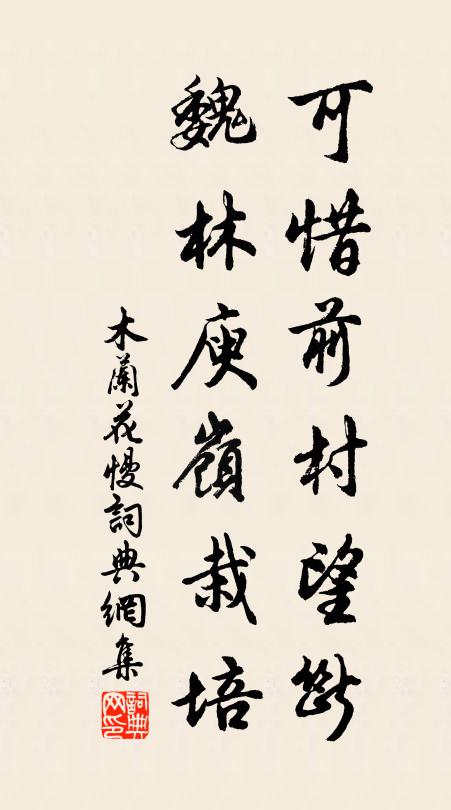 可惜前村望斷
魏林庾嶺栽培
木蘭花慢詞典網集
詞典網印